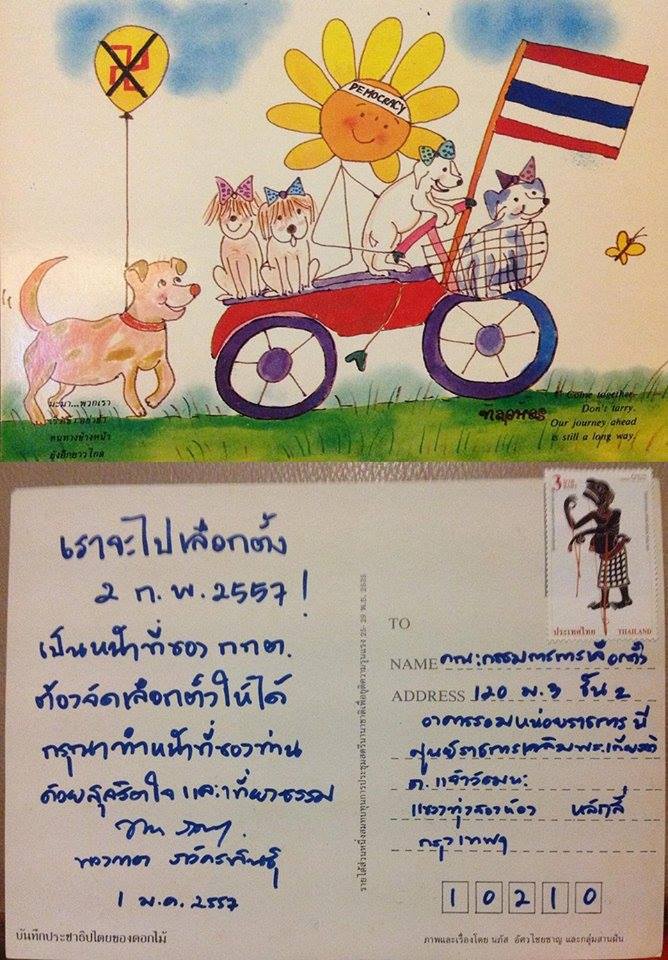 DEMOCRACY
มะมา...พวกเรา
หนทางข้างหน้า
ยังอีกยาวไกล
Come together,
Don't tarry.
Our journey ahead
is still a long way.
เราจะไปเลือกตั้ง
2 ก.พ. 2557!
เป็นหน้าที่ของ กกต.
ต้องจัดเลือกตั้งให้ได้
กรุณาทำหน้าที่ของท่าน
ด้วยสุจริตใจ และเที่ยงธรรม
พวงทอง ภวัครพันธุ์
1 ม.ค. 2557
บันทึกประชาธิปไตยของดอกไม้
3 บาท
ประเทศไทย THAILAND
TO
NAME คณะกรรมการการเลือกตั้ง
ADDRESS 120 ม.3 ชั้น 2
อาคารรวมหน่วยราชการ
ศูนย์ราชการเฉลิมพระเกียรติ
ถ.แจ้งวัฒนะ
แขวงทุ่งสองห้อง หลักสี่
กรุงเทพฯ
10210
ภาพและเรื่องโดย นภัส อัศวไชยชาญ และกลุ่มสานฝัน